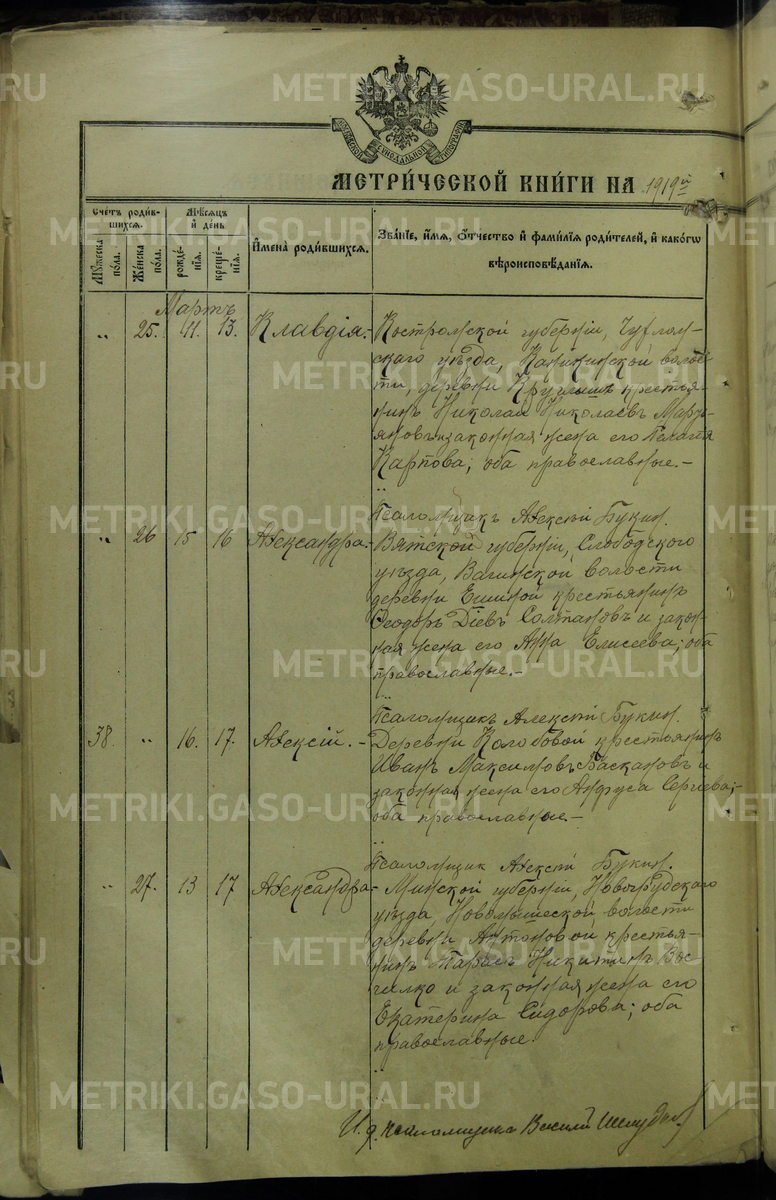 METRIKI.GASO-URAL.RU
МЕТРИ́ЧЕСКОЙ КНИ́ГИ НА 1919й
Счетъ роди́вшихся.
Мѣ́сяцъ и҆ де́нь
И҆мена̀ роди́вшихся.
Зва́нїе, и҆́мѧ, ѻ҆́тчество и҆ фами́лїѧ роди́телей, и҆ како́гѡ
вѣроисповѣ́данїѧ.
Мꙋ́жеска по́ла.
Же́нска по́ла.
рожде́нїѧ.
креще́нїѧ.
Мартъ
„ 25. 11. 13. Клавдія. – Костромской губерніи, Чухлом-
скаго уѣзда, Каликинской волос-
ти, деревни крестья-
нинъ Николай Николаевъ Марь-
яновъ и законная жена его Пелагія
Карпова; оба православные. –
Псаломщикъ Алексѣй Букин.
„ 26 15 16 Александра. – Вятской губерніи, Слободского
уѣзда, Вагинской волости
деревни крестьянинъ
Ѳеодоръ Діевъ Солтановъ и закон-
ная жена его Анна Елисеева; оба
православные. –
Псаломщикъ Алексѣй Букин.
38. „ 16. 17. Алексій. – Деревни Колобовой крестьянинъ
Иванъ Максимовъ Баскановъ и
законная жена его Анфуса Сергіева; –
оба православные. –
Псаломщик Алексѣй Букин.
„ 27. 13 17 Александра – Минской губерніи, Новогрудскаго
уѣзда, Новомышской волости
деревни Антоновой крестья-
нинъ Тарасъ Никитинъ Вас-
чилко и законная жена его
Екатерина Сидорова; оба
православные.
И. д. псаломщика Василій